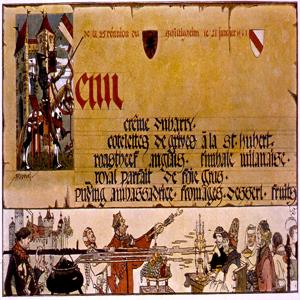 de la 25 réunion du
Menu
crême dubarry.
cotelettes de grives à la st. hubert.
roastbeef anglais. timbale milanaise.
royal parfait de foie gras.
puding ambassadrice. fromages. dessert. fruits